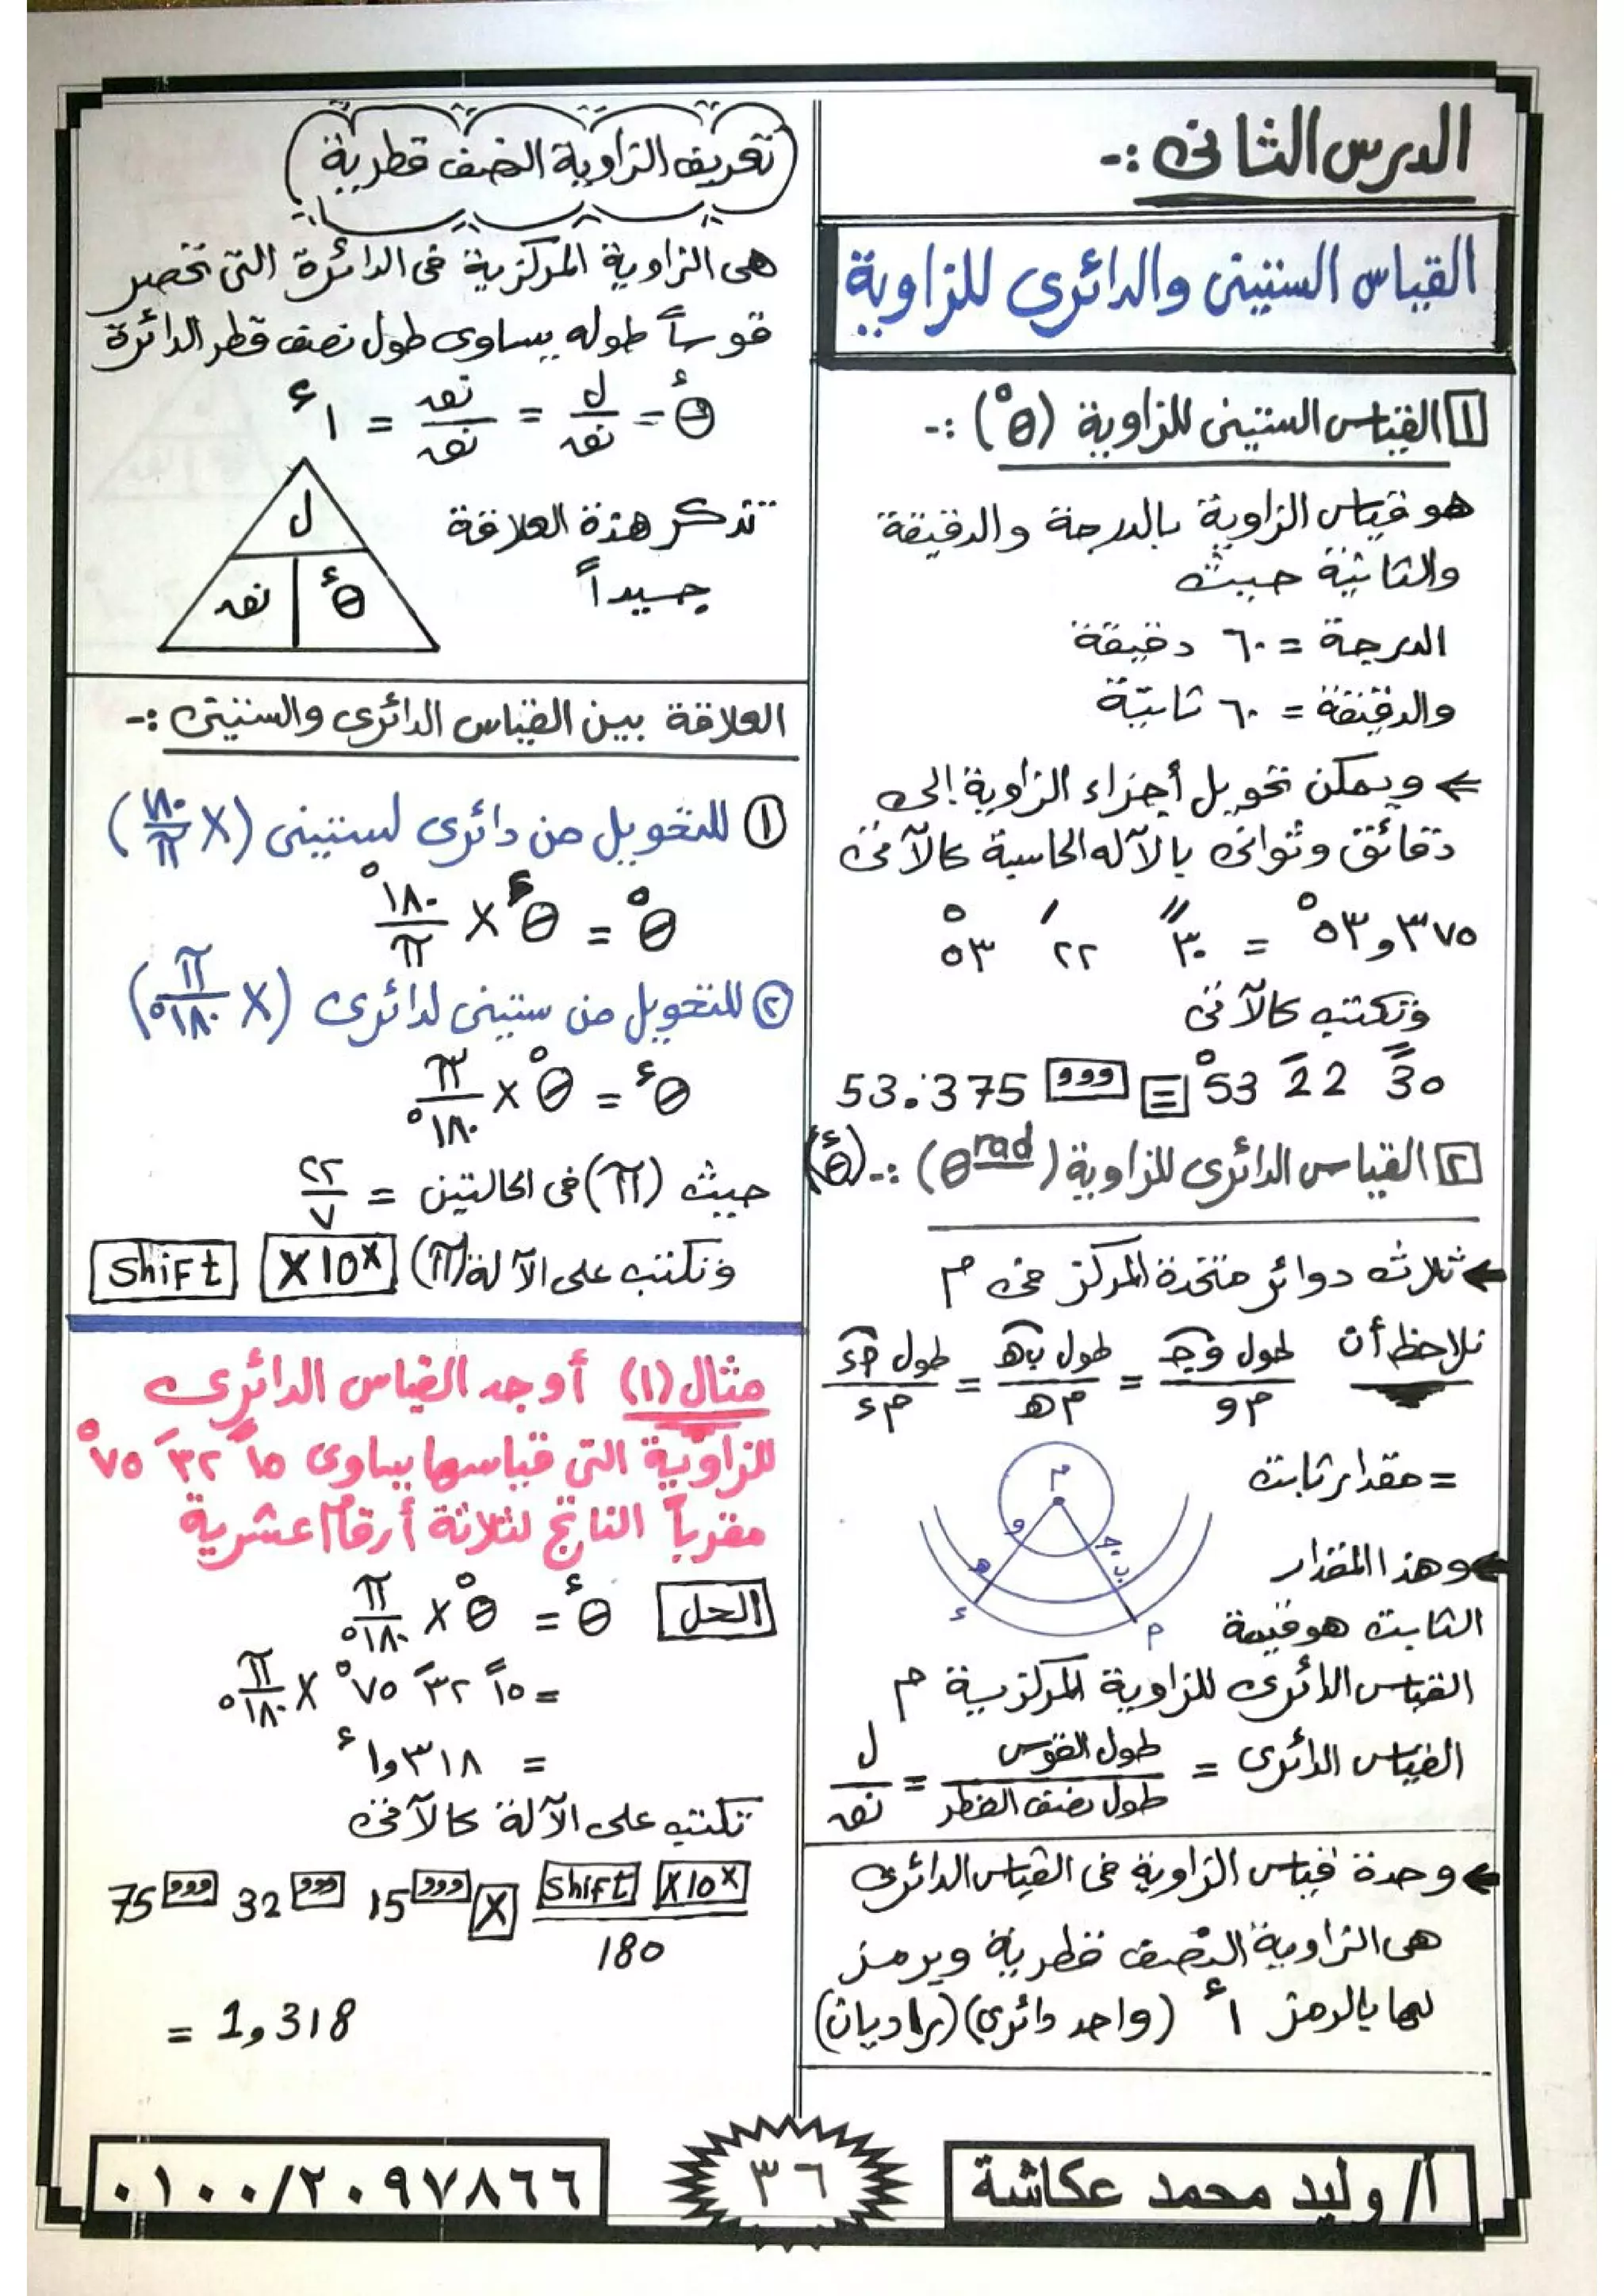 الدرس الثانى :-
القياس الستينى والدائرى للزاوية
١ القياس الستينى للزاوية (θ°) :-
هو قياس الزاوية بالدرجة والدقيقة
والثانية حيث
الدرجة = ٦٠ دقيقة
والدقيقة = ٦٠ ثانية
← ويمكن تحويل أجزاء الزاوية إلى
دقائق وثوانى بالآله الحاسبة كالآتى
٥٣,٣٧٥° = ٣٠ ً ٢٢ َ ٥٣°
وتكتب كالآتى
53.375 ,,, = 53° 22' 30"
٢ القياس الدائرى للزاوية (θ rad) :- (θ ء)
← ثلاث دوائر متحدة المركز فى م
نلاحظ أن طول وجـ / م و = طول ب هـ / م هـ = طول أ ء / م ء
= مقدار ثابت
م
و
جـ
هـ
ب
ء
أ
← وهذا المقدار
الثابت هو قيمة
القياس الدائرى للزاوية المركزية م
القياس الدائرى = طول القوس / طول نصف القطر = ل / نق
← وحدة قياس الزاوية فى القياس الدائرى
هى الزاوية النصف قطرية ويرمز
لها بالرمز ١ ء (واحد دائرى) (راديان)
تعريف الزاوية النصف قطرية
هى الزاوية المركزية فى الدائرة التى تحصر
قوساً طوله يساوى طول نصف قطر الدائرة
θ ء = ل / نق = نق / نق = ١ ء
تذكر هذة العلاقة
جيداً
ل
θ ء | نق
العلاقة بين القياس الدائرى والستينى :-
① للتحويل من دائرى لستينى (× ١٨٠ / π)
θ° = θ ء × ١٨٠° / π
② للتحويل من ستينى لدائرى (× π / ١٨٠°)
θ ء = θ° × π / ١٨٠°
حيث (π) فى الحالتين = ٢٢ / ٧
وتكتب على الآلة (π) X10ˣ Shift
مثال (١) أوجد القياس الدائرى
للزاوية التى قياسها يساوى ١٥ ً ٣٢ َ ٧٥°
مقرباً الناتج لثلاثة أرقام عشرية
الحل θ ء = θ° × π / ١٨٠°
= ١٥ ً ٣٢ َ ٧٥° × π / ١٨٠°
= ١,٣١٨ ء
تكتب على الآلة كالآتى
75 ,,, 32 ,,, 15 ,,, X Shift X10ˣ / 180
= 1,318
أ/ وليد محمد عكاشة
٣٦
٠١٠٠/٢٠٩٧٨٦٦